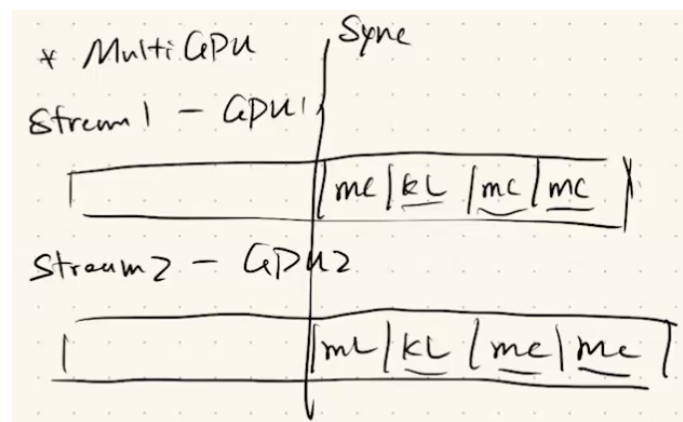 * Multi GPU
Sync
Stream 1 - GPU1
mc | KL | mc | mc
Stream 2 - GPU2
mc | KL | mc | mc